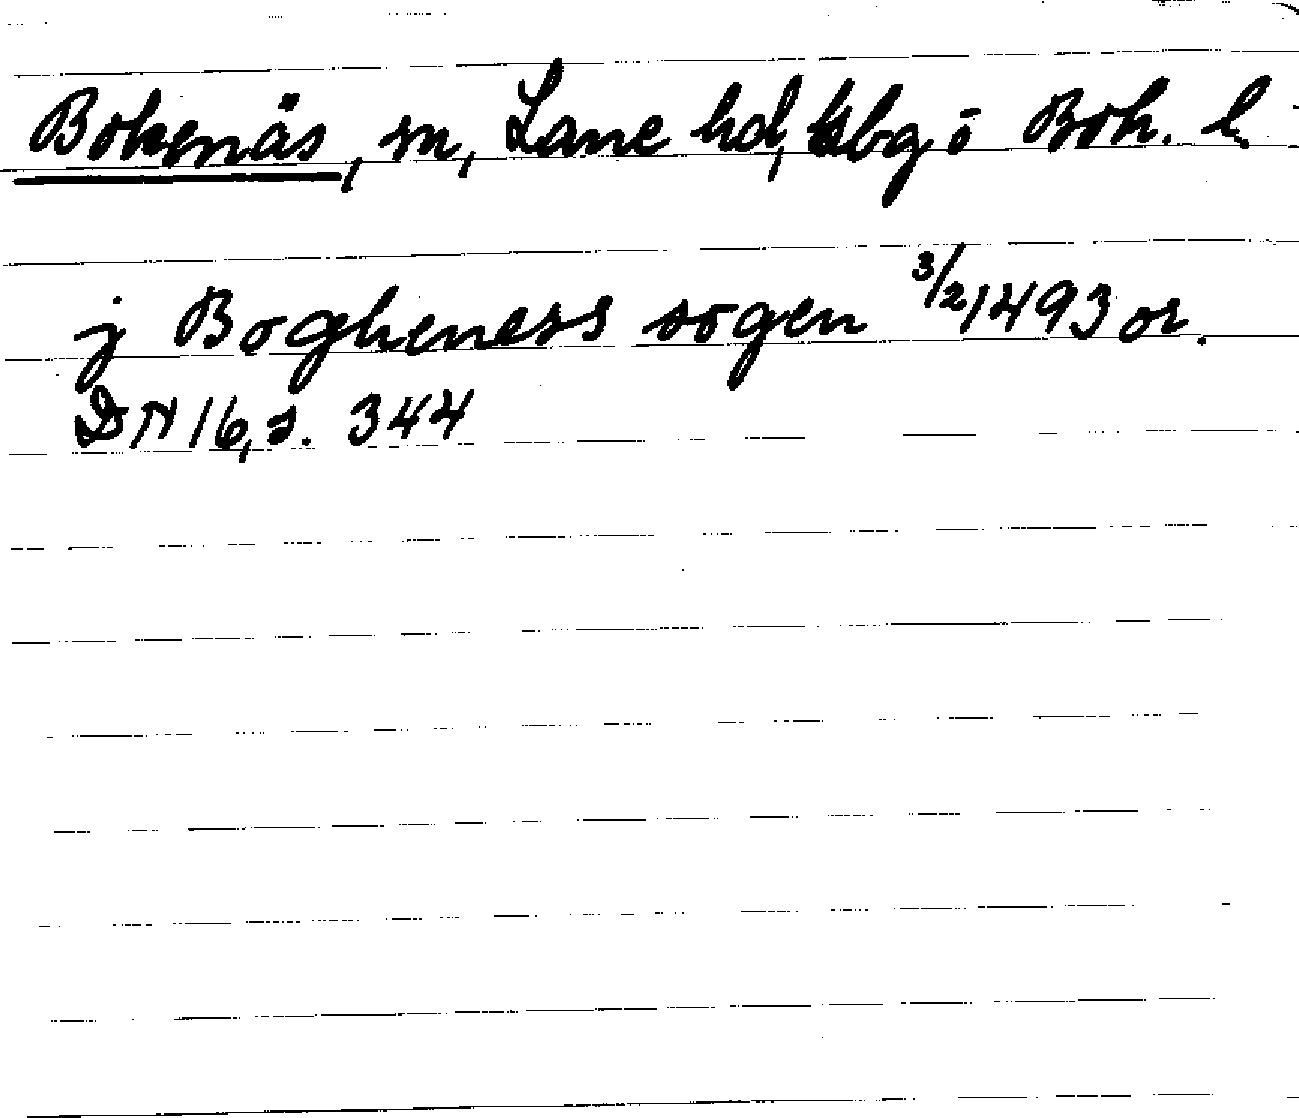 Bokenäs, sn, Lane hd, Gbg o Boh. l
j Bogheness sogen 3/2 1493 or.
DN 16, s. 344